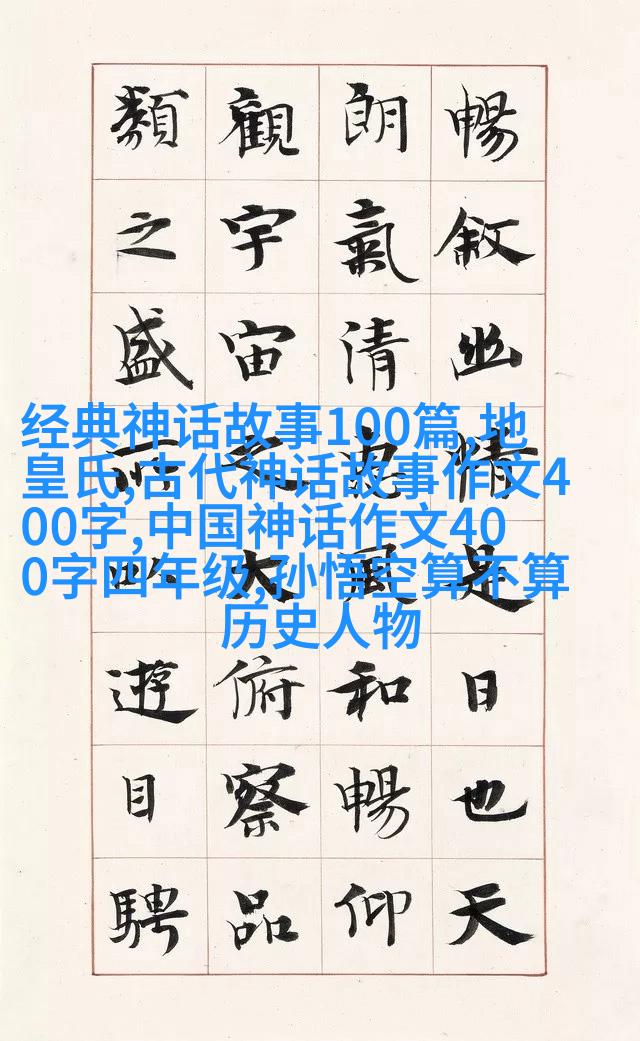 暢敘幽情是日也天
朗氣清惠風和暢仰
觀宇宙之大俯察品
類之盛所以遊目騁
经典神话故事100篇,地
皇氏,古代神话故事作文4
00字,中国神话作文40
0字四年级,孙悟空算不算
历史人物